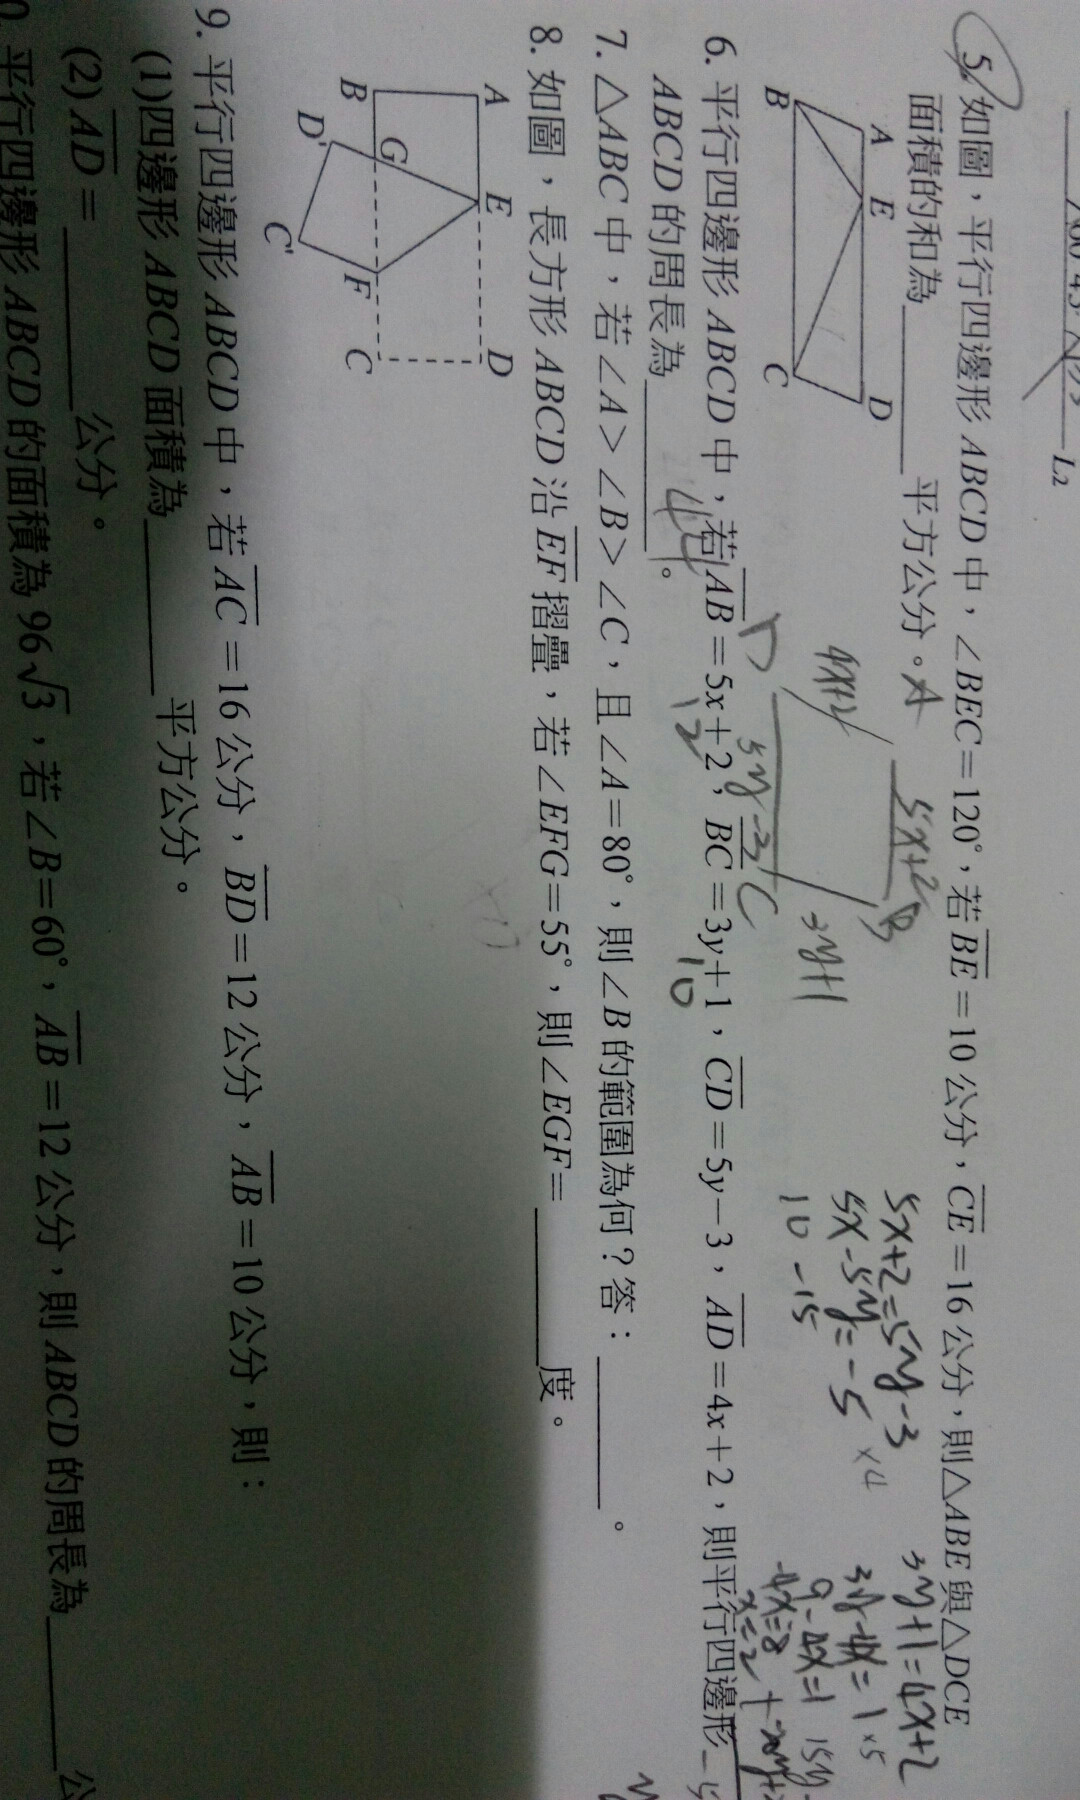 L2
5. 如圖，平行四邊形 ABCD 中，∠BEC=120°，若 BE=10 公分，CE=16 公分，則△ABE 與△DCE
面積的和為＿＿＿＿平方公分。
A E D
B C
6. 平行四邊形 ABCD 中，若 AB=5x+2，BC=3y+1，CD=5y−3，AD=4x+2，則平行四邊形
ABCD 的周長為＿＿＿＿。
44
12
10
4x+2
5x+2
B
D
5y-3
C
3y+1
5x+2=5y-3
5x-5y=-5 x4
10 -15
3y+1=4x+2
3y-4x=1 x5
9-4x=1
-4x=8
x=2
7. △ABC 中，若∠A>∠B>∠C，且∠A=80°，則∠B 的範圍為何？答：＿＿＿＿。
8. 如圖，長方形 ABCD 沿 EF 摺疊，若∠EFG=55°，則∠EGF=＿＿＿＿度。
A E D
B G F C
D' C'
9. 平行四邊形 ABCD 中，若 AC=16 公分，BD=12 公分，AB=10 公分，則：
(1)四邊形 ABCD 面積為＿＿＿＿平方公分。
(2) AD=＿＿＿＿公分。
平行四邊形 ABCD 的面積為 96√3，若∠B=60°，AB=12 公分，則 ABCD 的周長為＿＿＿＿公